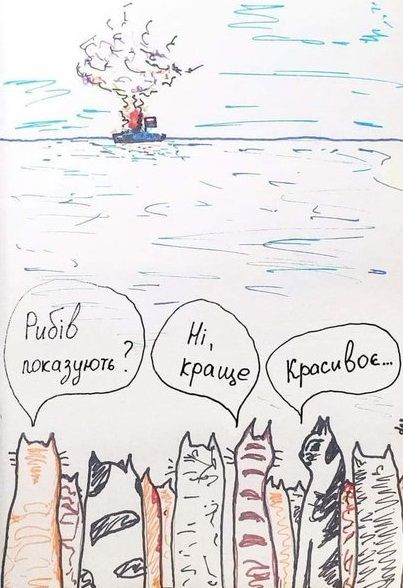 Рибів
показують?
Ні,
краще
Красивоє...